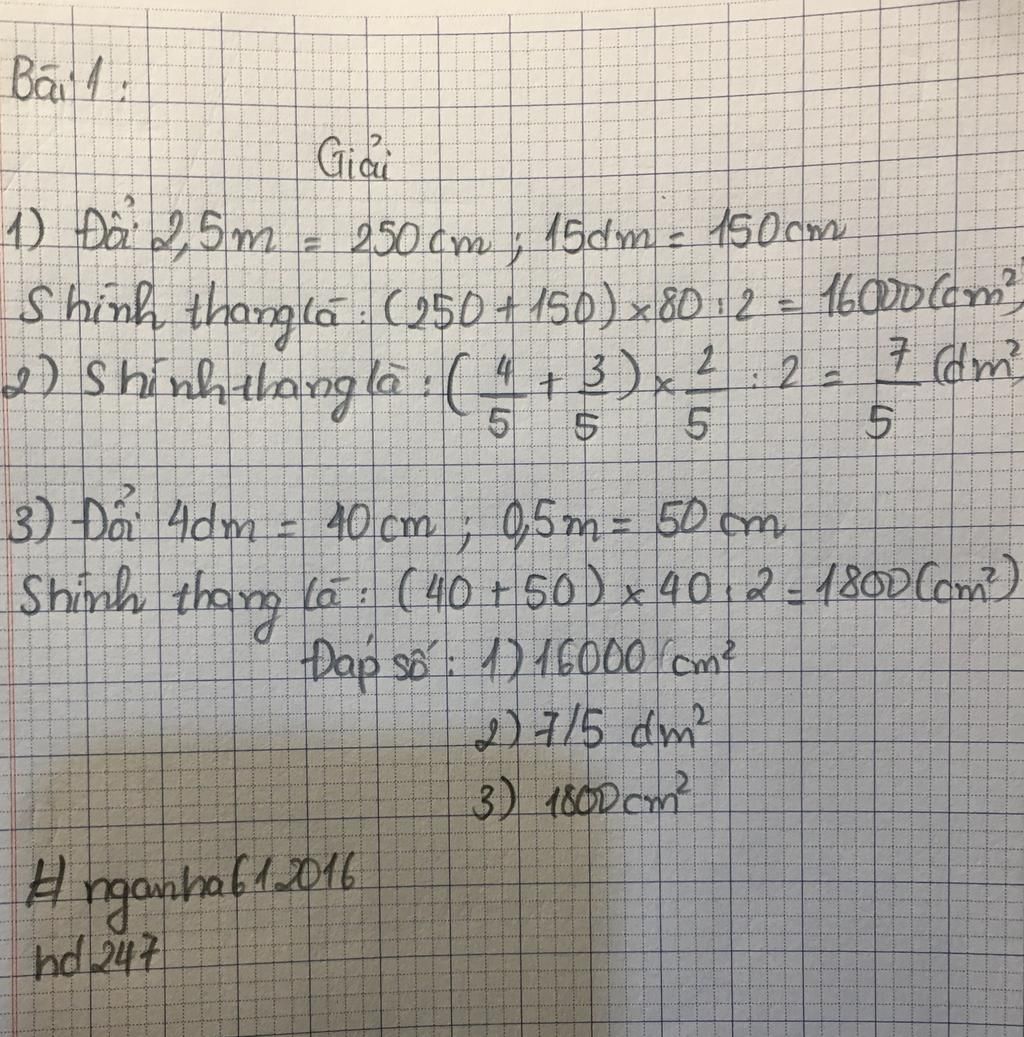 Bài 1:
Giải
1) Đổi 2,5m = 250cm; 15dm = 150cm
S hình thang là: (250 + 150) x 80 : 2 = 16000 (cm²)
2) S hình thang là: (4/5 + 3/5) x 2/5 : 2 = 7/5 (dm²)
3) Đổi 4dm = 40cm; 0,5m = 50cm
S hình thang là: (40 + 50) x 40 : 2 = 1800 (cm²)
Đáp số: 1) 16000 cm²
2) 7/5 dm²
3) 1800cm²
# nganha612016
hd247